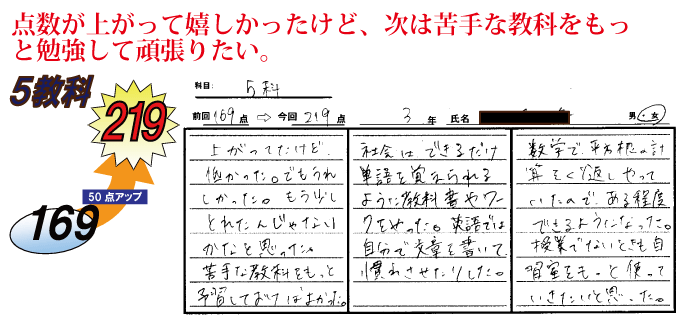 点数が上がって嬉しかったけど、次は苦手な教科をもっ
と勉強して頑張りたい。
5教科
219
50点アップ
169
科目: 5科
前回 169 点 ⇨ 今回 219 点 3 年 氏名 男・女
上がってたけど、
低かった。でもうれ
しかった。もう少し
とれたんじゃない
かなと思った。
苦手な教科をもっと
予習しておけばよかった。
社会はできるだけ
単語を覚えられる
ように教科書やワー
クをやった。英語では
自分で文章を書いて、
慣れさせたりした。
数学で、平方根の計
算をくり返しやって
いたので、ある程度
できるようになった。
授業でないときも自
習室をもっと使って
いきたいと思った。